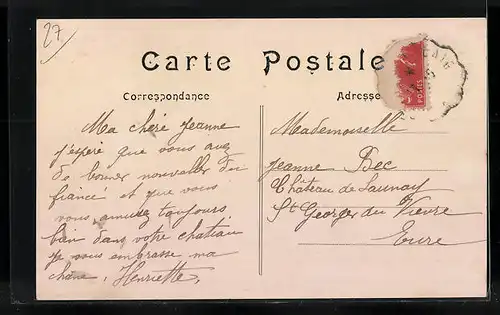 27
Carte Postale
Correspondance
Adresse
POSTES
Ma chère Jeanne
j'espère que vous avez
de bonnes nouvelles du
fiancé et que vous
vous amusez toujours
bien dans votre chateau
je vous embrasse ma
chère. Henriette.
Mademoiselle
Jeanne Bec
Château de Launay
St Georges du Vievre
Eure